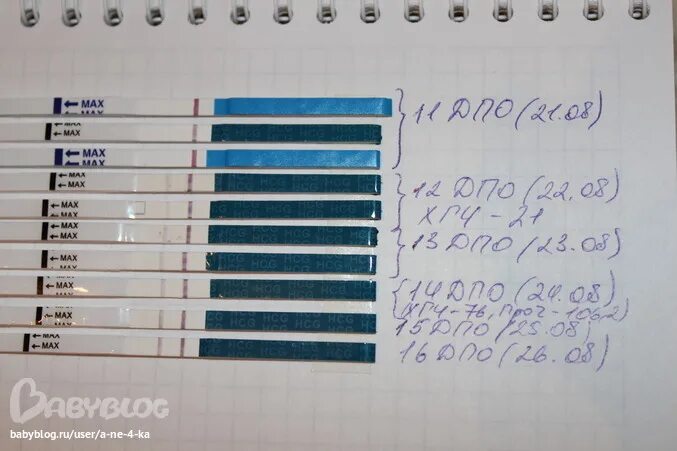 ← MAX
← MAX
← MAX
← MAX
← MAX
← MAX
← MAX
← MAX
← MAX
← MAX
HCG HCG HCG
HCG HCG HCG
HCG HCG HCG
HCG HCG HCG
HCG HCG HCG
HCG HCG HCG
HCG HCG HCG
HCG HCG HCG
11 ДПО (21.08)
12 ДПО (22.08)
ХГЧ - 21
13 ДПО (23.08)
14 ДПО (24.08)
(ХГЧ-76, Прог-106,2)
15 ДПО (25.08)
16 ДПО (26.08)
BABYBLOG
babyblog.ru/user/a-ne-4-ka